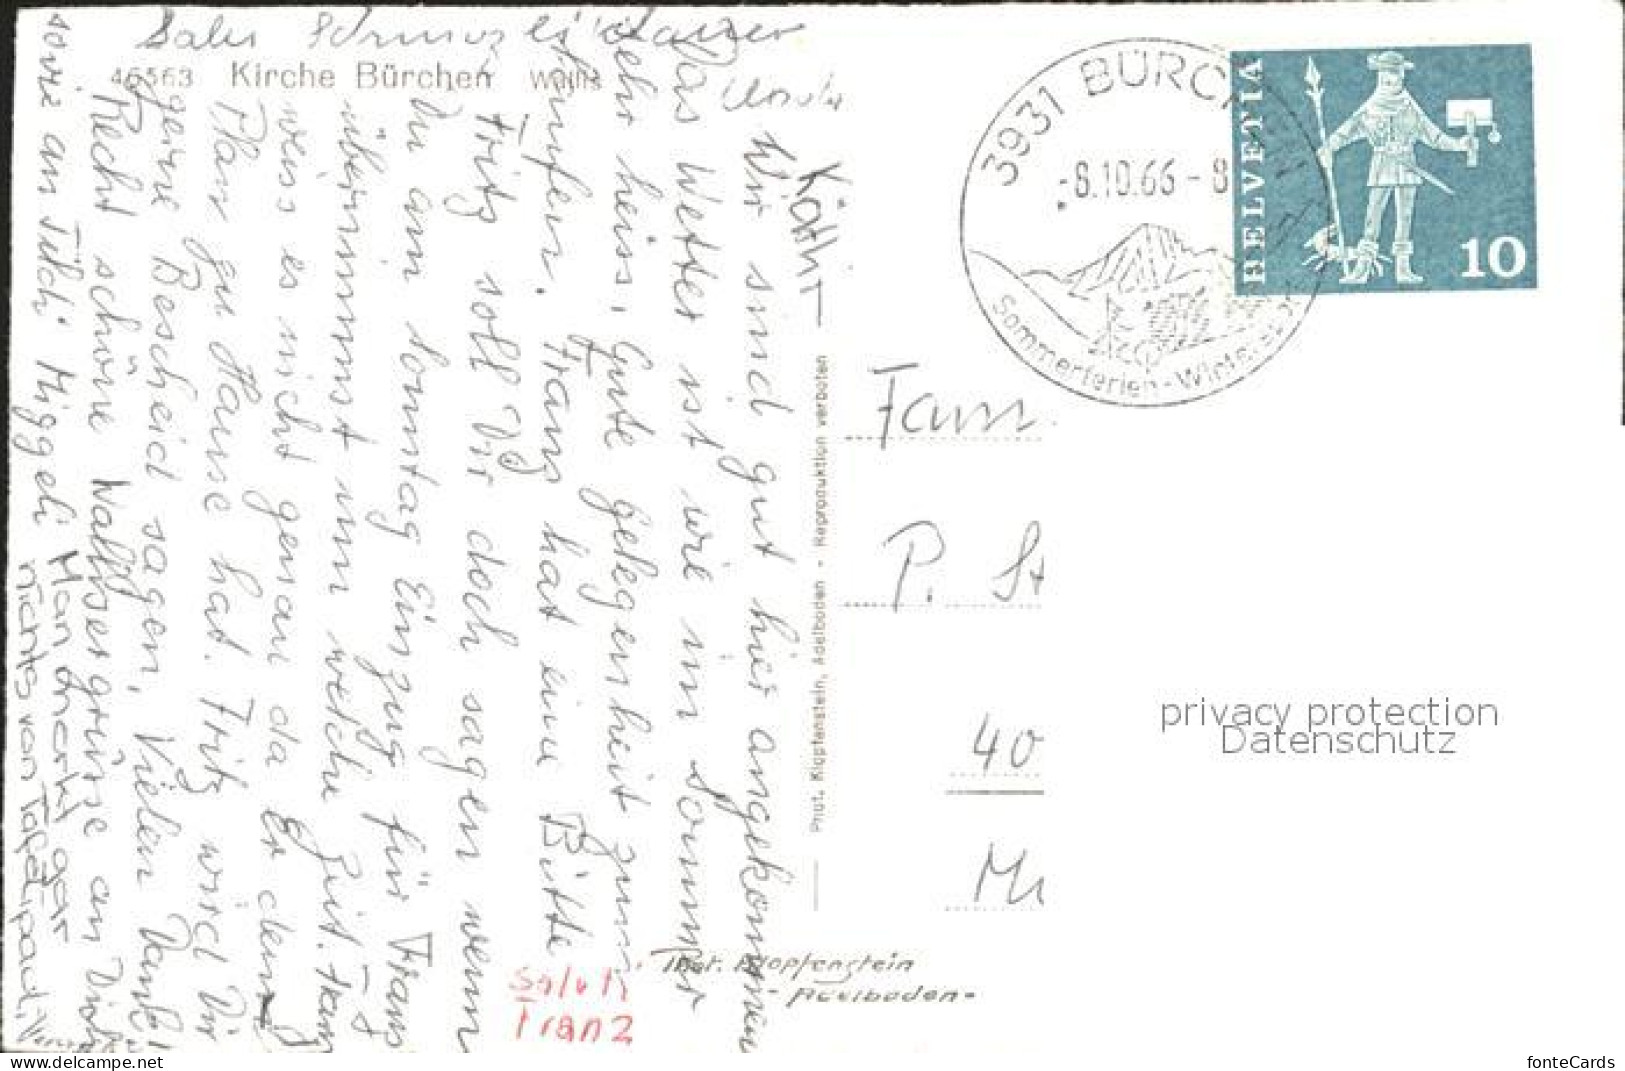 46563 Kirche Bürchen Wallis
Wir sind gut hier angekommen
Das Wetter ist wie im Sommer
sehr heiss, Gute gelegenheit zum
Franz hat eine Bitte
Fritz soll Dir doch sagen wenn
Du am Sonntag Einzug für Franz
übernimmst um welche Zeit. Franz
weiss es nicht genau da Er den
Plan zu Hause hat. Fritz wird Dir
gerne Bescheid sagen, Vielen Dank!
Recht schöne Wallisergrüsse an Dich
sowie an Miggeli
Man merkt gar
nichts von
Salut
Franz
Phot. Klopfenstein, Adelboden - Reproduktion verboten
Phot. Klopfenstein
- Adelboden -
3931 BÜRCHEN
-8.10.66-8
Sommerferien - Wintersport
HELVETIA
10
Fam.
P. St
40
privacy protection
Datenschutz
fonteCards